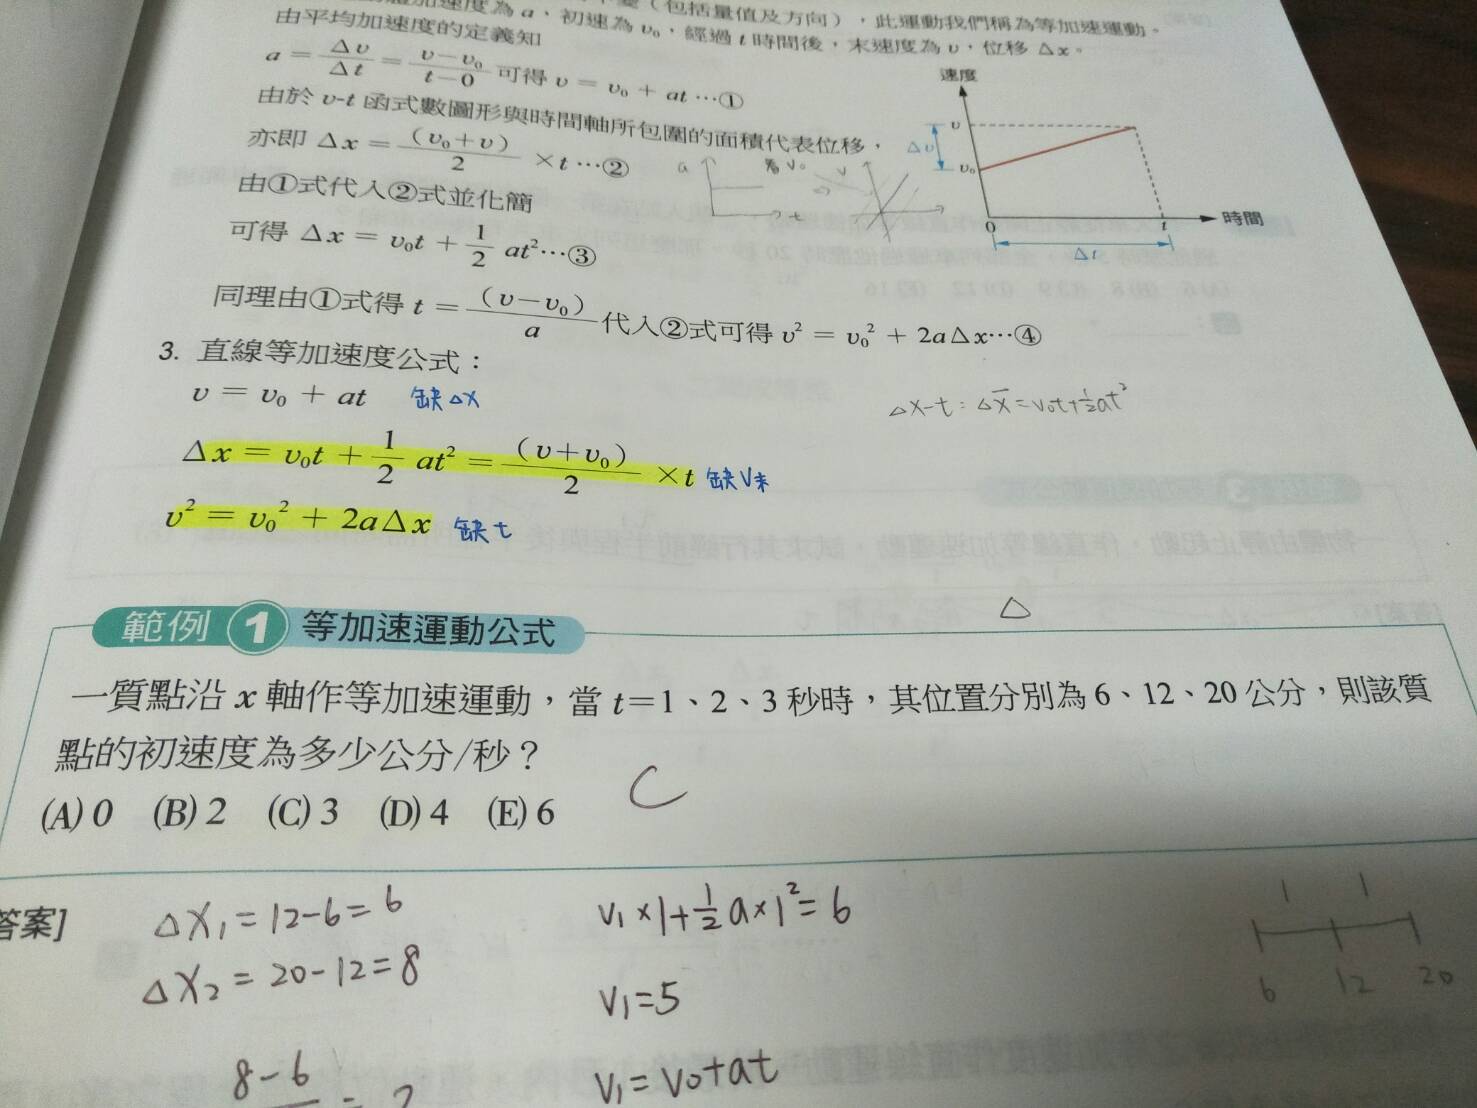 加速度為 a、初速為 v₀,經過 t 時間後,末速度為 v,位移 Δx。
(包括量值及方向),此運動我們稱為等加速運動。
由平均加速度的定義知
a = Δv/Δt = v−v₀/t−0 可得 v = v₀ + at …①
由於 v-t 函式數圖形與時間軸所包圍的面積代表位移,
亦即 Δx = (v₀+v)/2 ×t …②
由①式代入②式並化簡
可得 Δx = v₀t + 1/2 at²…③
同理由①式得 t = (v−v₀)/a 代入②式可得 v² = v₀² + 2aΔx…④
速度
v
Δv
v₀
0
t
時間
Δt
a
t
看 v₀
v
3. 直線等加速度公式:
v = v₀ + at 缺Δx
Δx-t : Δx = v₀t+½at²
Δx = v₀t + 1/2 at² = (v+v₀)/2 ×t 缺V末
v² = v₀² + 2aΔx 缺t
範例 1 等加速運動公式
Δ
一質點沿 x 軸作等加速運動,當 t=1、2、3 秒時,其位置分別為 6、12、20 公分,則該質
點的初速度為多少公分/秒?
(A) 0 (B) 2 (C) 3 (D) 4 (E) 6
C
答案]
ΔX₁ = 12-6 = 6
ΔX₂ = 20-12 = 8
8-6
V₁×1+½a×1² = 6
V₁=5
V₁ = V₀+at
1 1
6 12 20